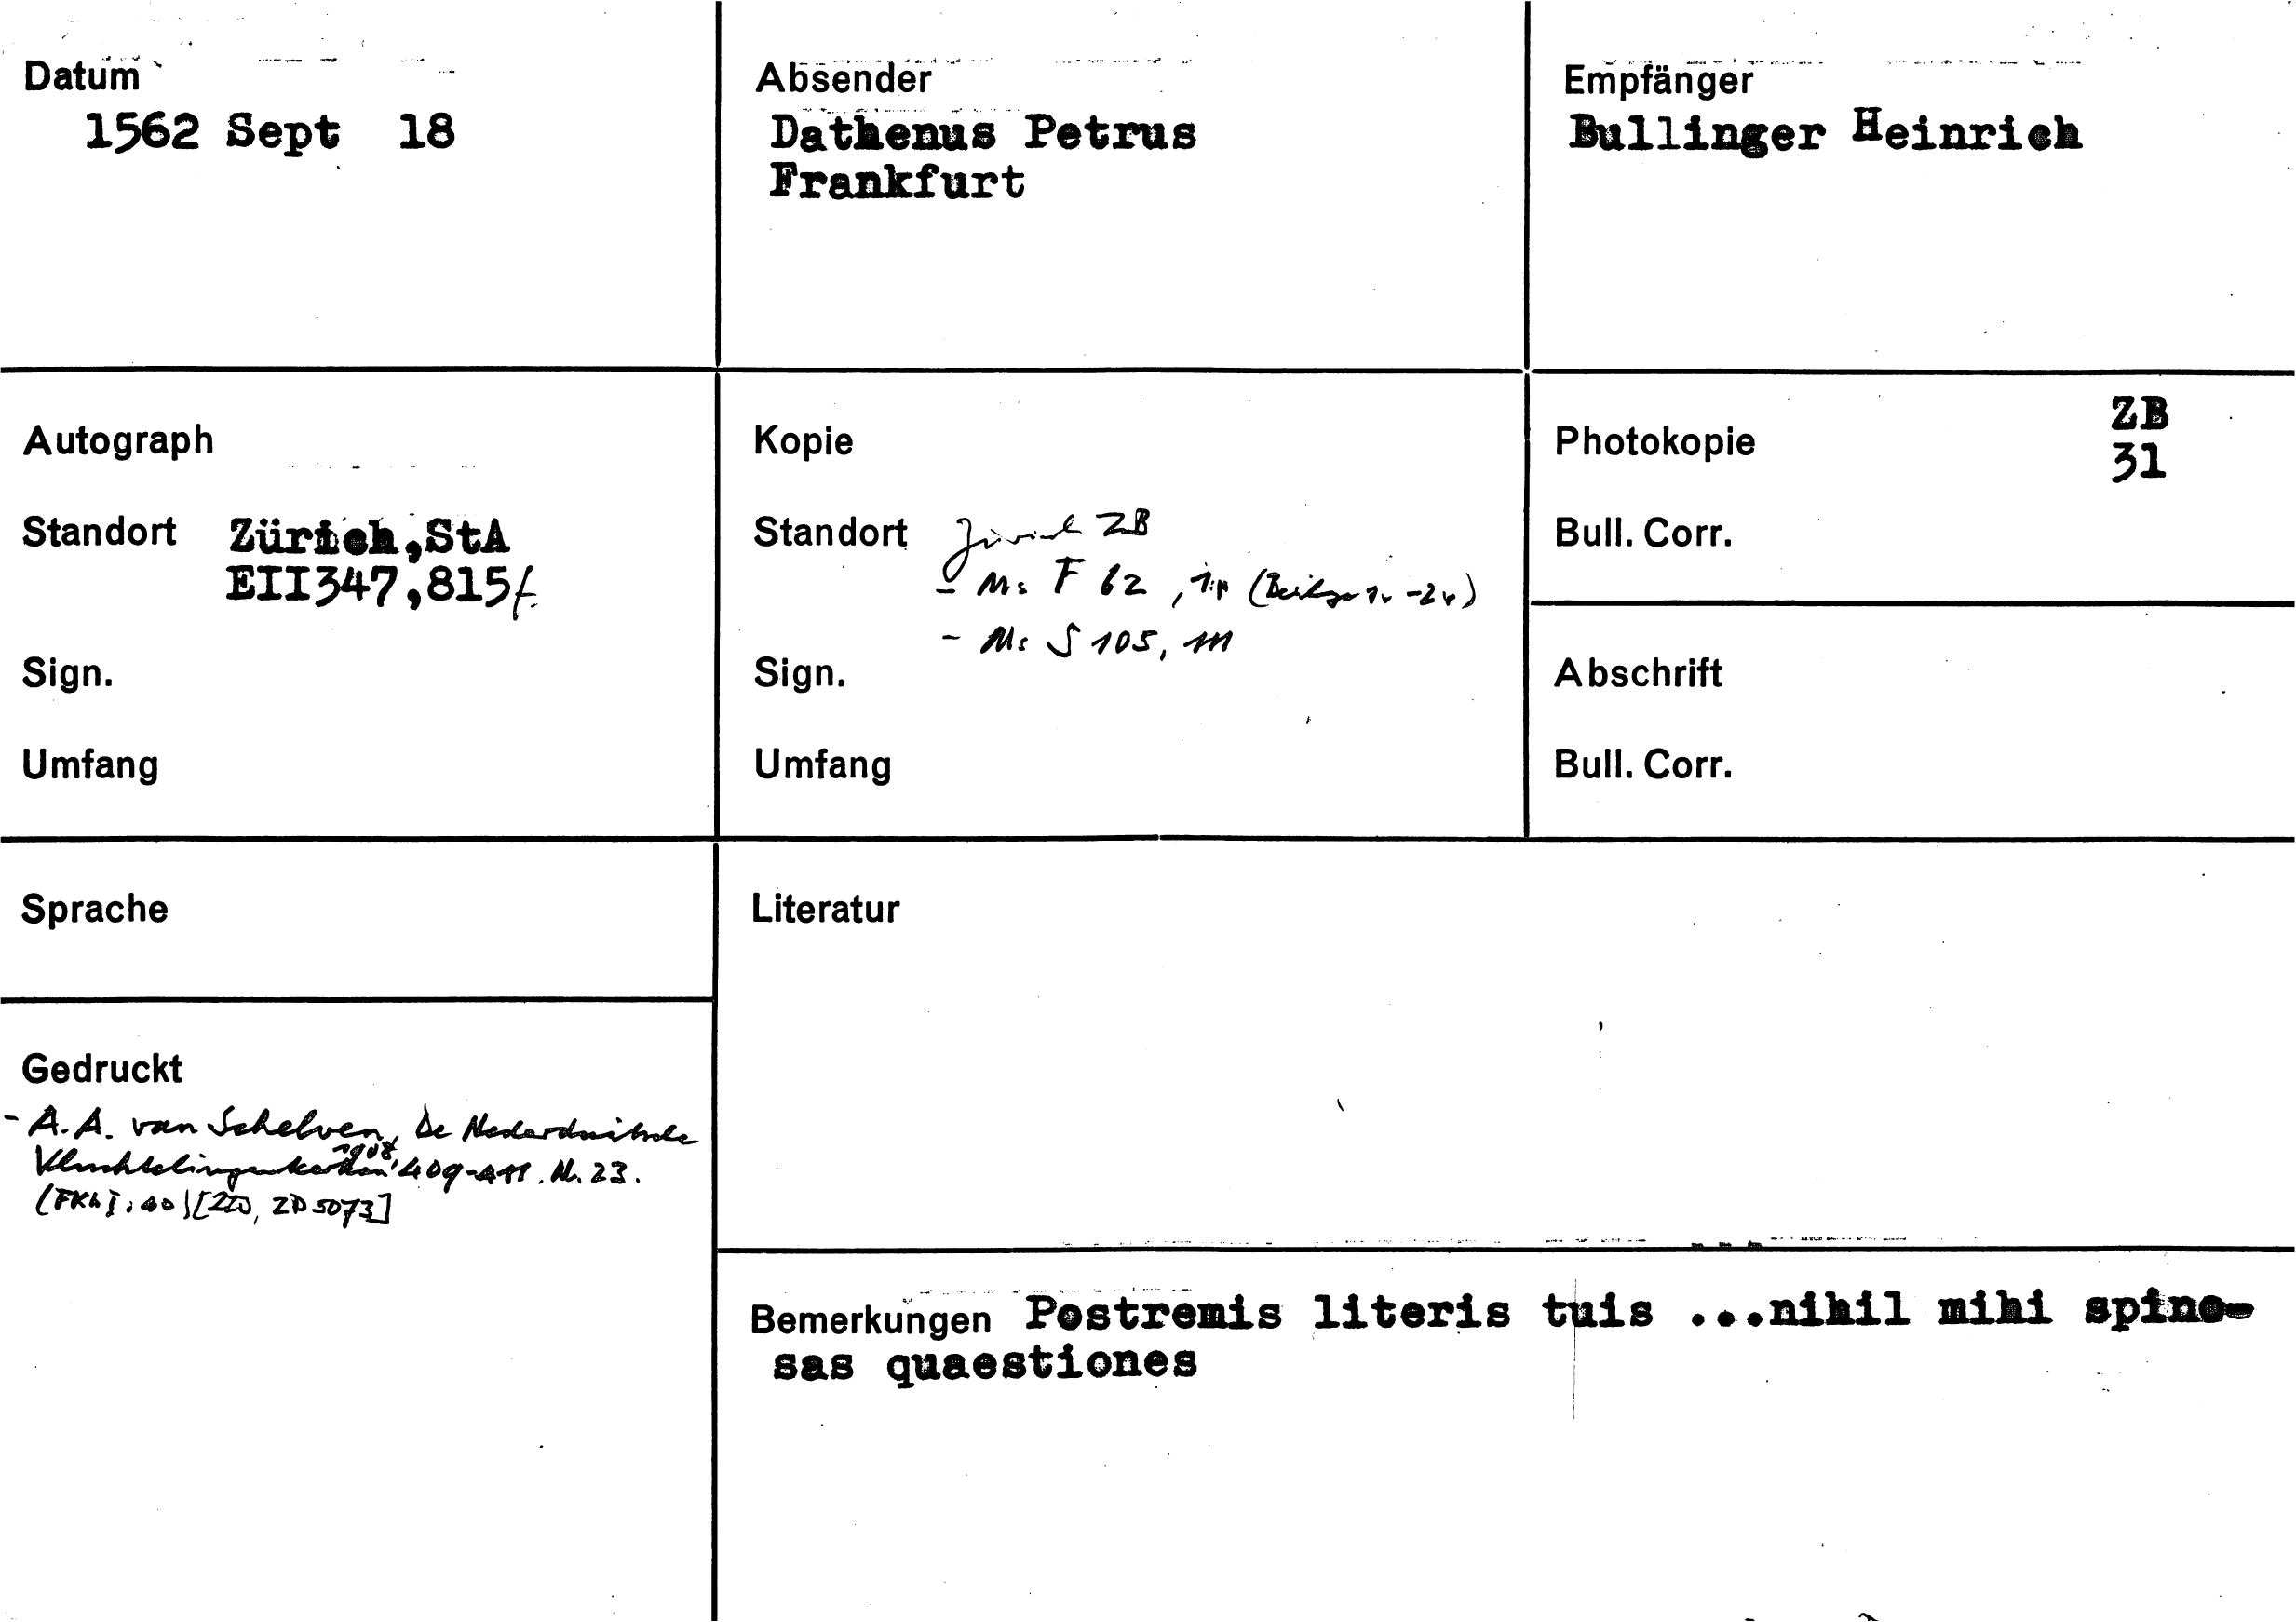 Datum
1562 Sept 18
Absender
Dathenus Petrus
Frankfurt
Empfänger
Bullinger Heinrich
Autograph
Standort Zürich,StA
EII347,815f.
Sign.
Umfang
Kopie
Standort Zürich ZB
- Ms F 62, (Beilage 1v-2v)
- Ms S 105, 111
Sign.
Umfang
Photokopie ZB
31
Bull. Corr.
Abschrift
Bull. Corr.
Sprache
Gedruckt
- A.A. van Schelven, De Nederduitsche
1908,
409-411. Nr. 23.
ZD 5073]
Literatur
Bemerkungen Postremis literis tuis ...nihil mihi spino-
sas quaestiones